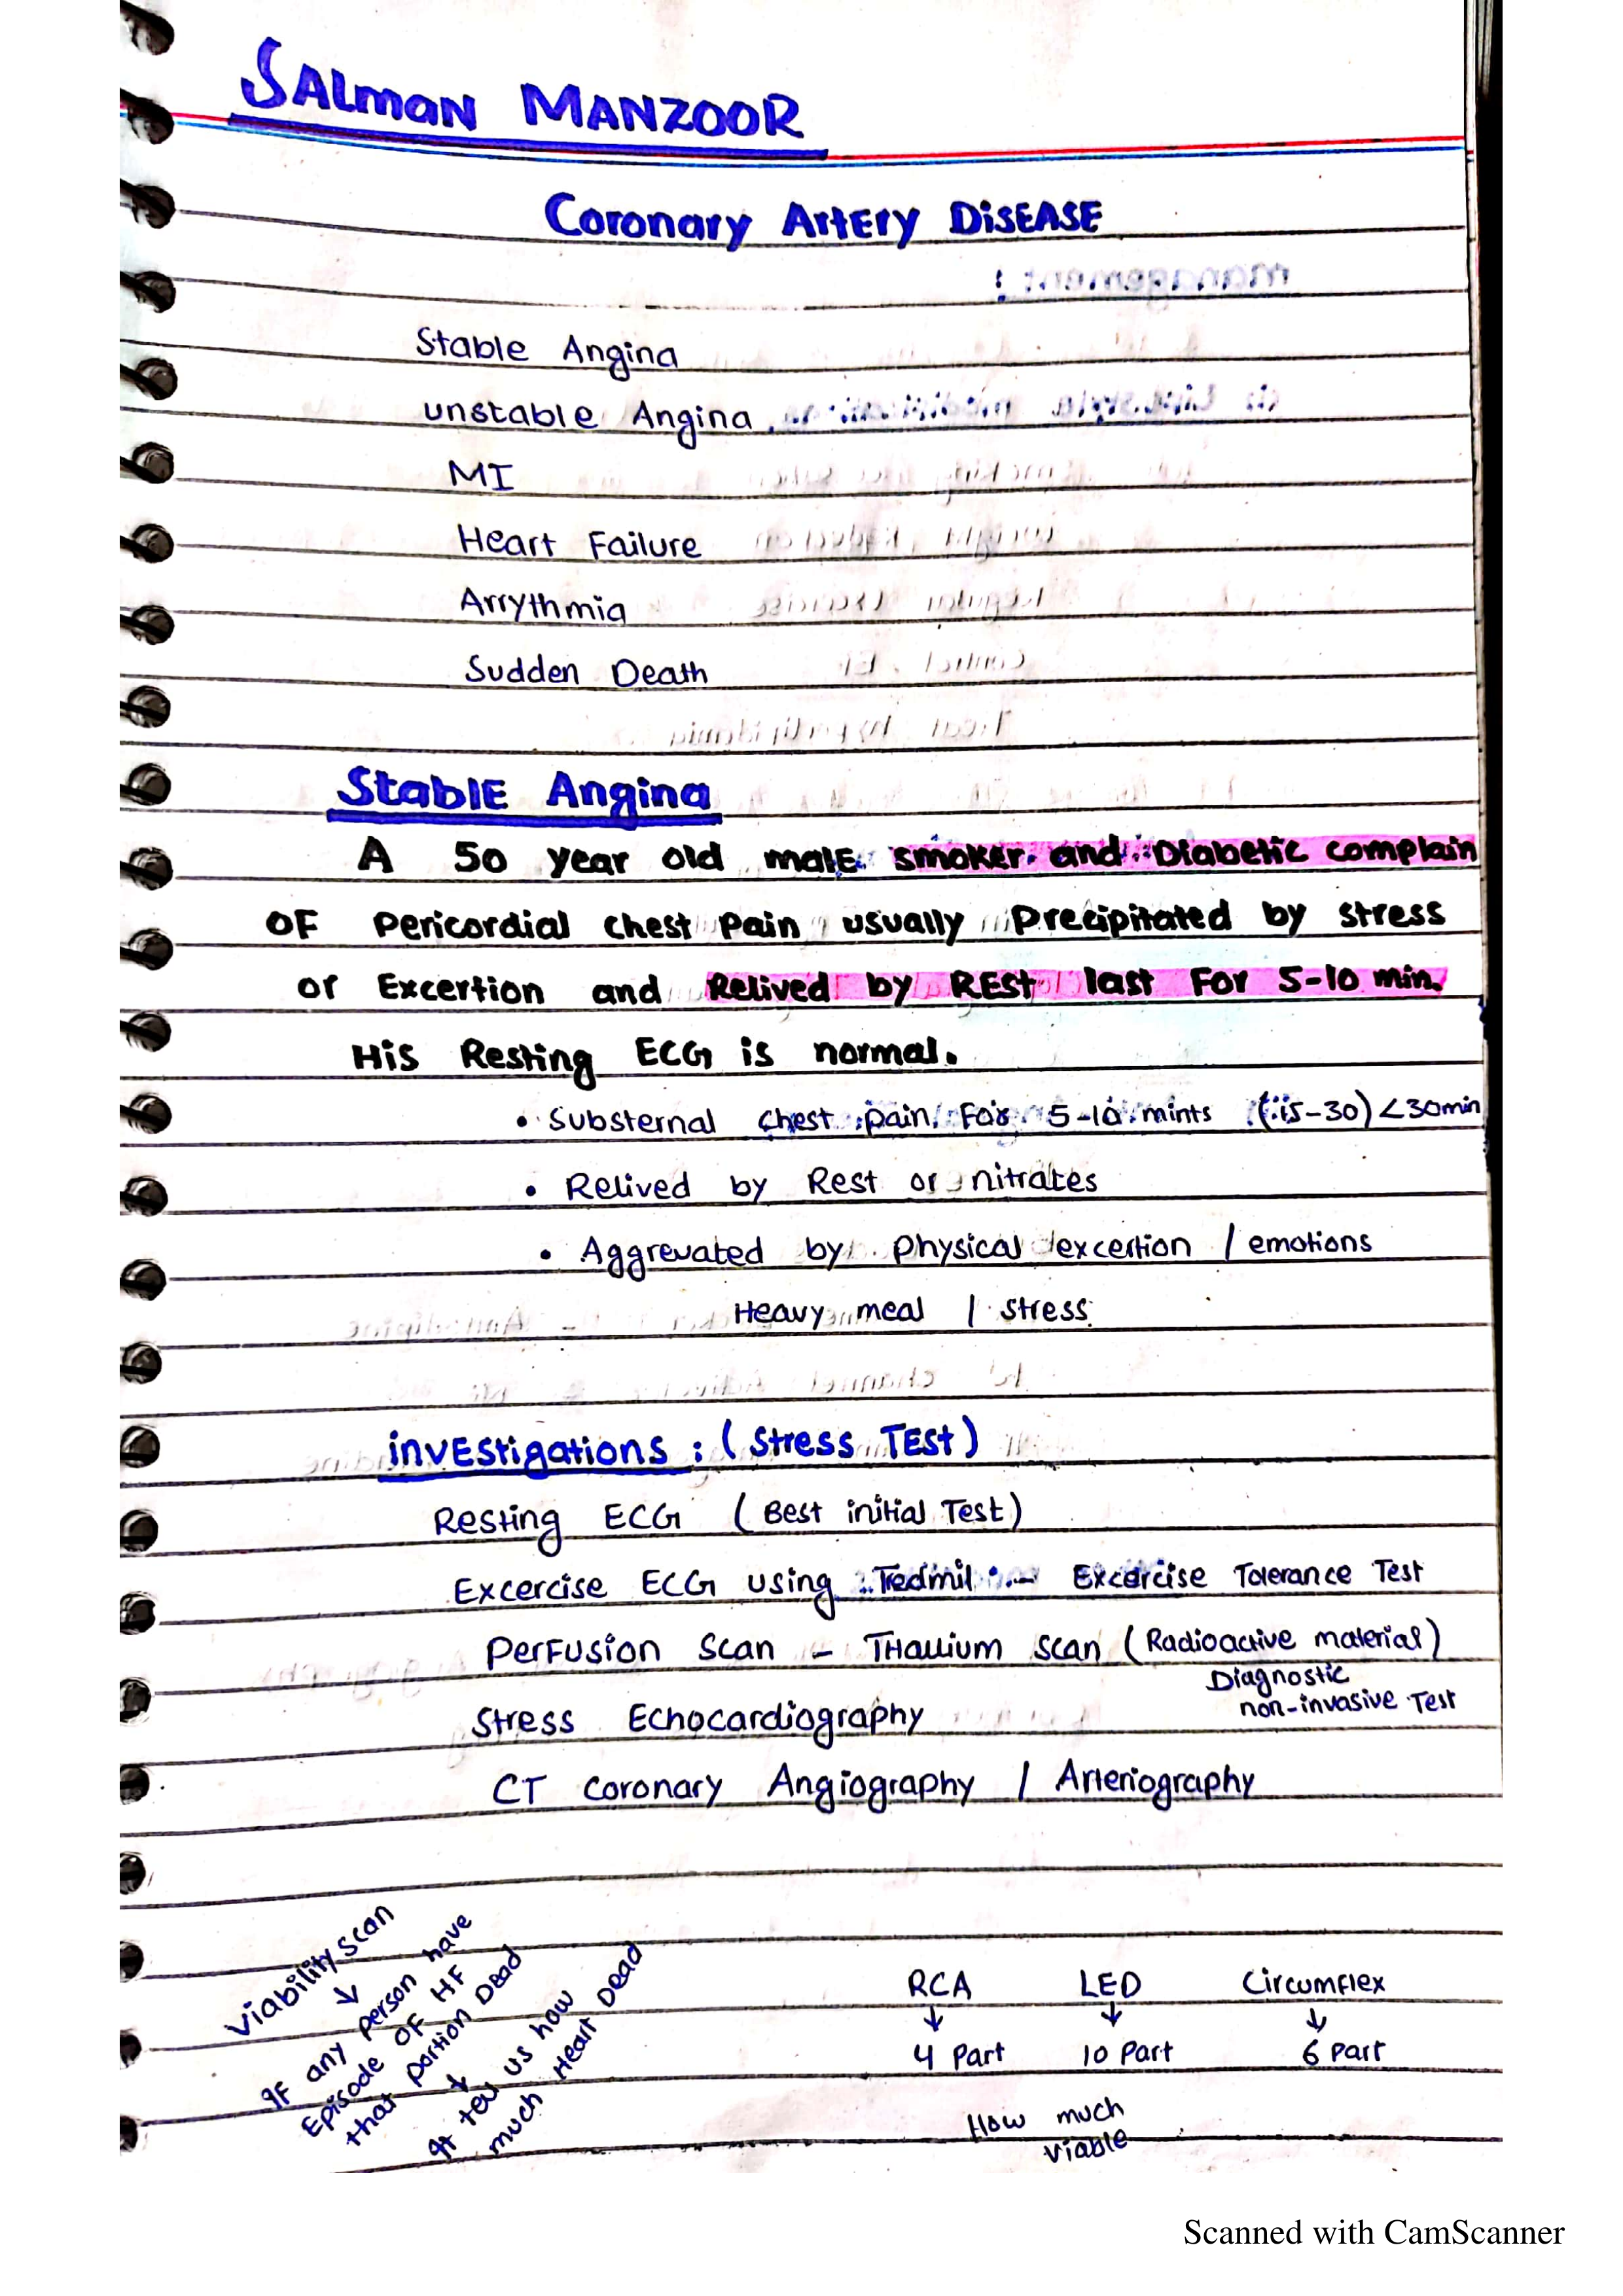 SALMAN MANZOOR
Coronary Artery DISEASE
Stable Angina
unstable Angina
MI
Heart Failure
Arrythmia
Sudden Death
Stable Angina
A 50 year old male smoker and Diabetic complain
OF Pericordial chest Pain usually Precipitated by stress
or Excertion and Relived by REst last For 5-10 min.
His Resting ECG is normal.
• Substernal chest pain For 5-10 mints (15-30) <30min
• Relived by Rest or nitrates
• Aggrevated by physical excertion / emotions
Heavy meal / stress
investigations : (Stress Test)
Resting ECG (Best initial Test)
Excercise ECG using Tedmil - Excercise Tolerance Test
Perfusion scan - THallium scan (Radioactive material)
Diagnostic
non-invasive Test
Stress Echocardiography
CT coronary Angiography / Arteriography
Viability scan
↓
If any person have
Episode OF HF
that portion Dead
↓
It tell us how
much Heart Dead
RCA LED Circumflex
↓ ↓ ↓
4 Part 10 Part 6 Part
How much
viable
Scanned with CamScanner